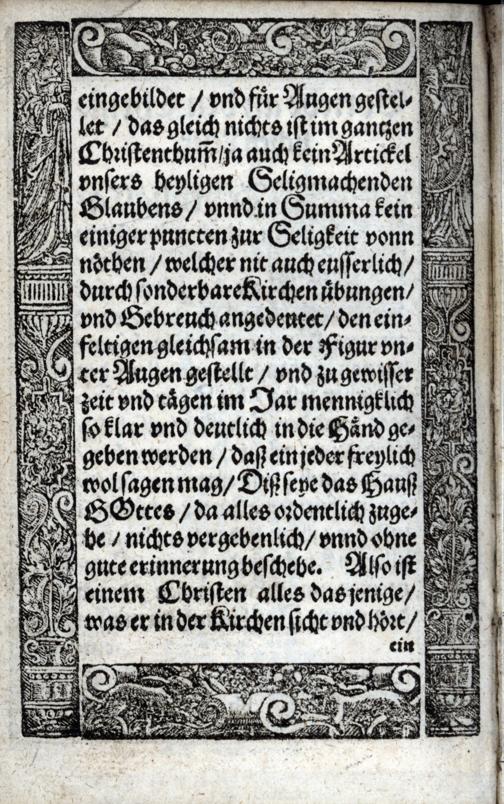 eingebildet / vnd für Augen gestel-
let / das gleich nichts ist im gantzen
Christenthum̃ / ja auch kein Artickel
vnsers heyligen Seligmachenden
Glaubens / vnnd in Summa kein
einiger puncten zur Seligkeit vonn
nöthen / welcher nit auch eusserlich /
durch sonderbare Kirchen übungen /
vnd Gebreuch angedeutet / den ein-
feltigen gleichsam in der Figur vn-
ter Augen gestellt / vnd zu gewisser
zeit vnd tägen im Jar mennigklich
so klar vnd deutlich in die Händ ge-
geben werden / daß ein jeder freylich
wol sagen mag / Diß seye das Hauß
GOttes / da alles ordentlich zuge-
he / nichts vergebenlich / vnnd ohne
gute erinnerung beschehe. Also ist
einem Christen alles das jenige /
was er in der Kirchen sicht vnd hört /
ein